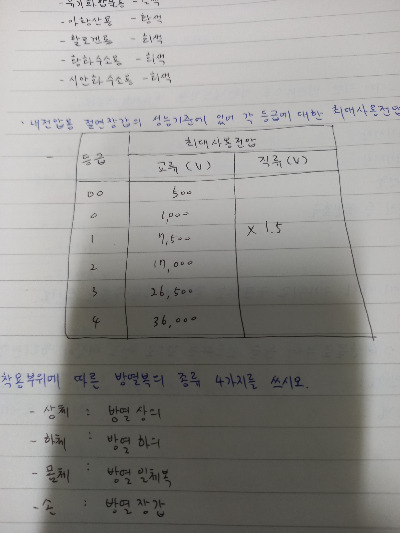 - 아황산용 - 황색
- 할로겐용 - 회색
- 황화수소용 - 회색
- 시안화수소용 - 회색
· 내전압용 절연장갑의 성능기준에 있어 각 등급에 대한 최대사용전압
등급 최대사용전압
교류 (V) 직류 (V)
00 500
0 1,000
1 7,500 × 1.5
2 17,000
3 26,500
4 36,000
착용부위에 따른 방열복의 종류 4가지를 쓰시오.
- 상체 : 방열상의
- 하체 : 방열하의
- 몸체 : 방열일체복
- 손 : 방열장갑